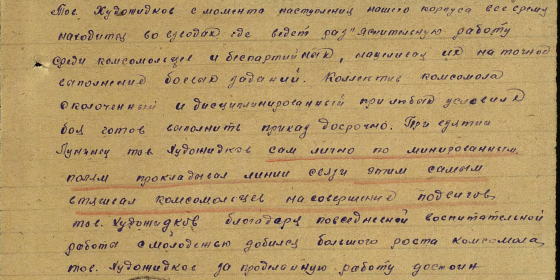 Тов. Художидков с момента наступления нашего корпуса все время
находится во взводах где ведет раз"яснительную работу
среди комсомольцев и беспартийных, нацеливая их на точное
выполнение боевых заданий. Коллектив комсомола
сколоченный и дисциплинированный при любых условиях
боя готов выполнить приказ досрочно. При взятии
тов. Художидков сам лично по минированным
полям прокладывал линии связи этим самым
комсомольцев на совершение подвигов,
тов. Художидков благодаря повседневной воспитательной
работа с молодостью добился большого роста комсомола,
тов. Художидков за проделанную работу достоин